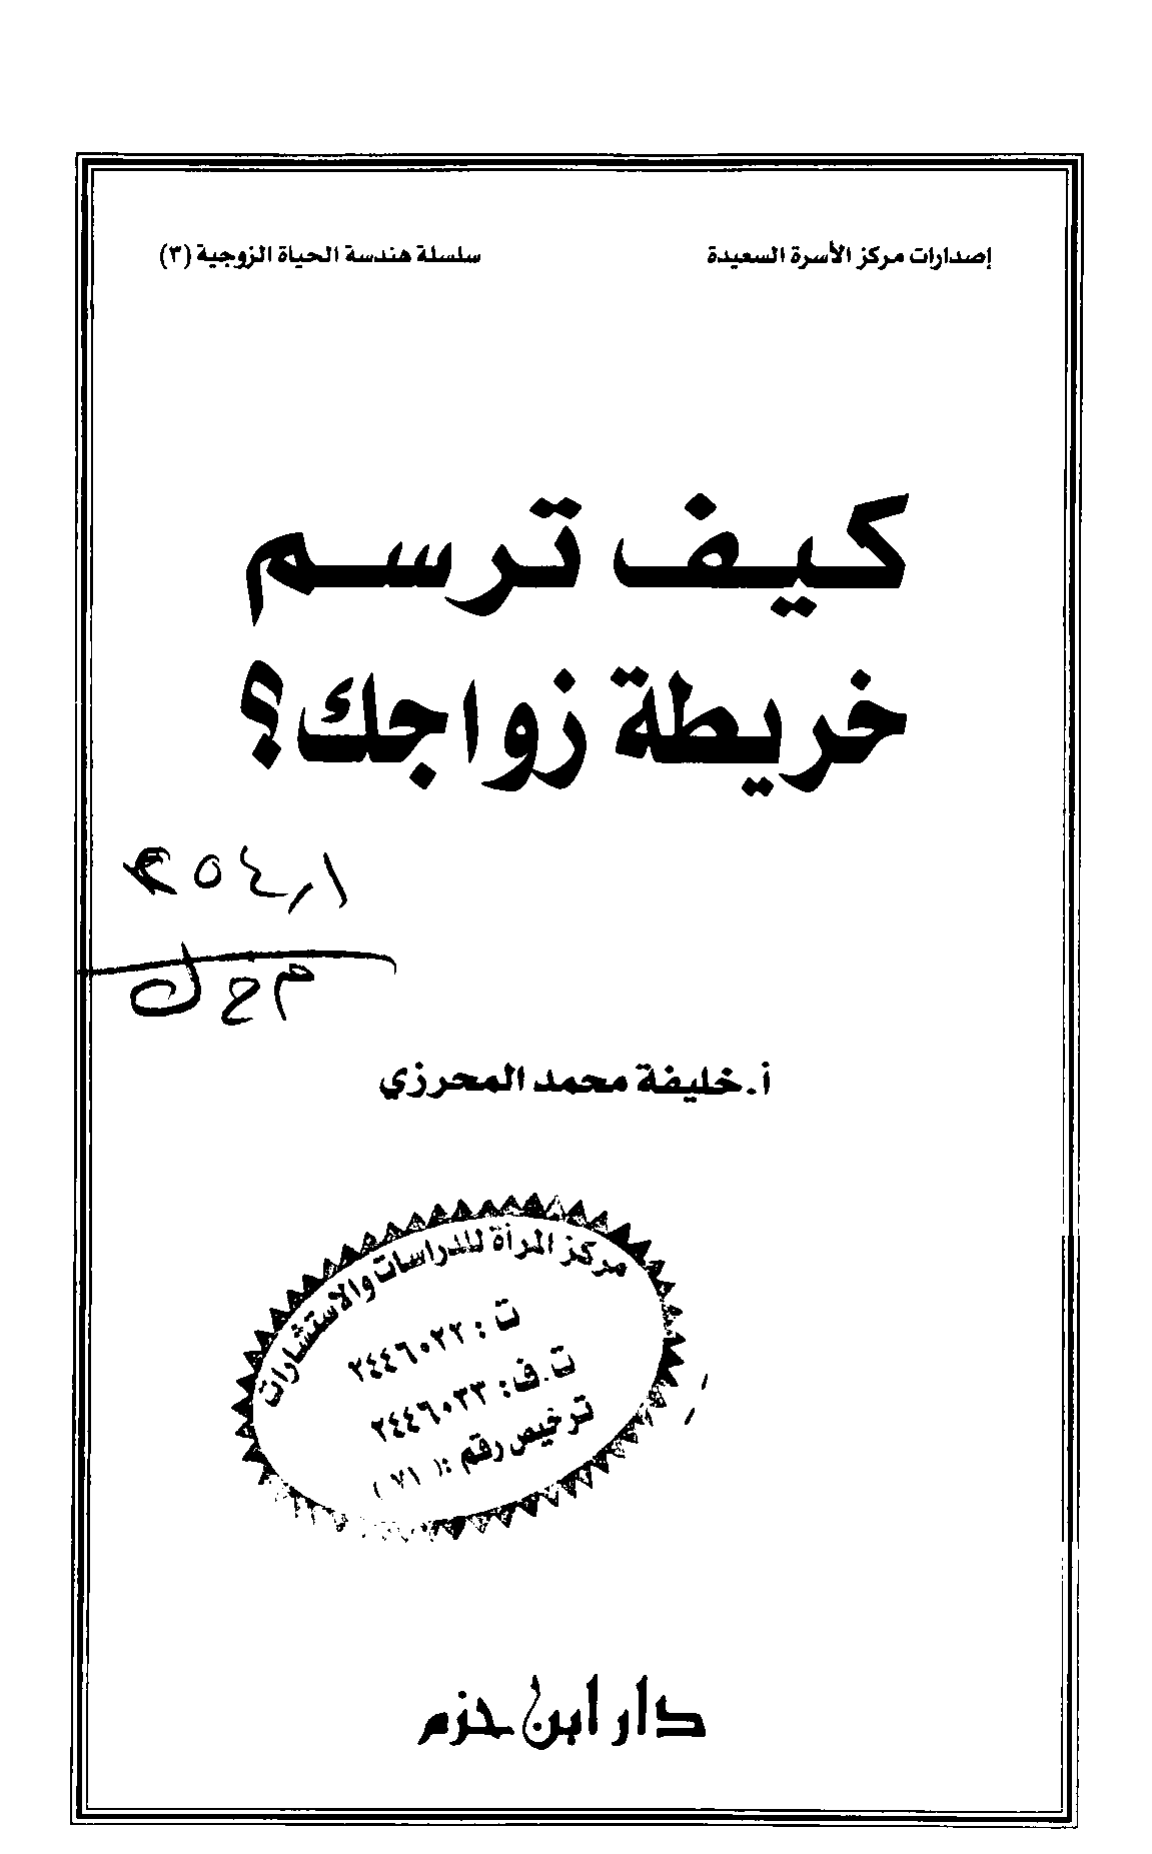 إصدارات مركز الأسرة السعيدة
سلسلة هندسة الحياة الزوجية (٣)
كيف ترسم
خريطة زواجك؟
٢٥٤,١
م خ ك
أ. خليفة محمد المحرزي
مركز المرأة للدراسات والاستشارات
ت : ٢٤٤٦٠٢٢
ت.ف: ٢٤٤٦٠٣٣
ترخيص رقم :( ٧١ )
دار ابن حزم